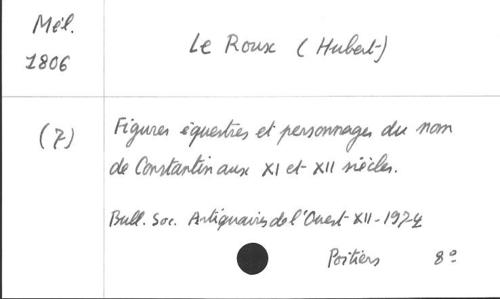 Mél.
1806
Le Roux (Hubert)
(7)
Figures équestres et personnages du nom
de Constantin aux XI et XII siècles.
Bull. Soc. Antiquaires de l'Ouest XII - 1974
Poitiers 8°